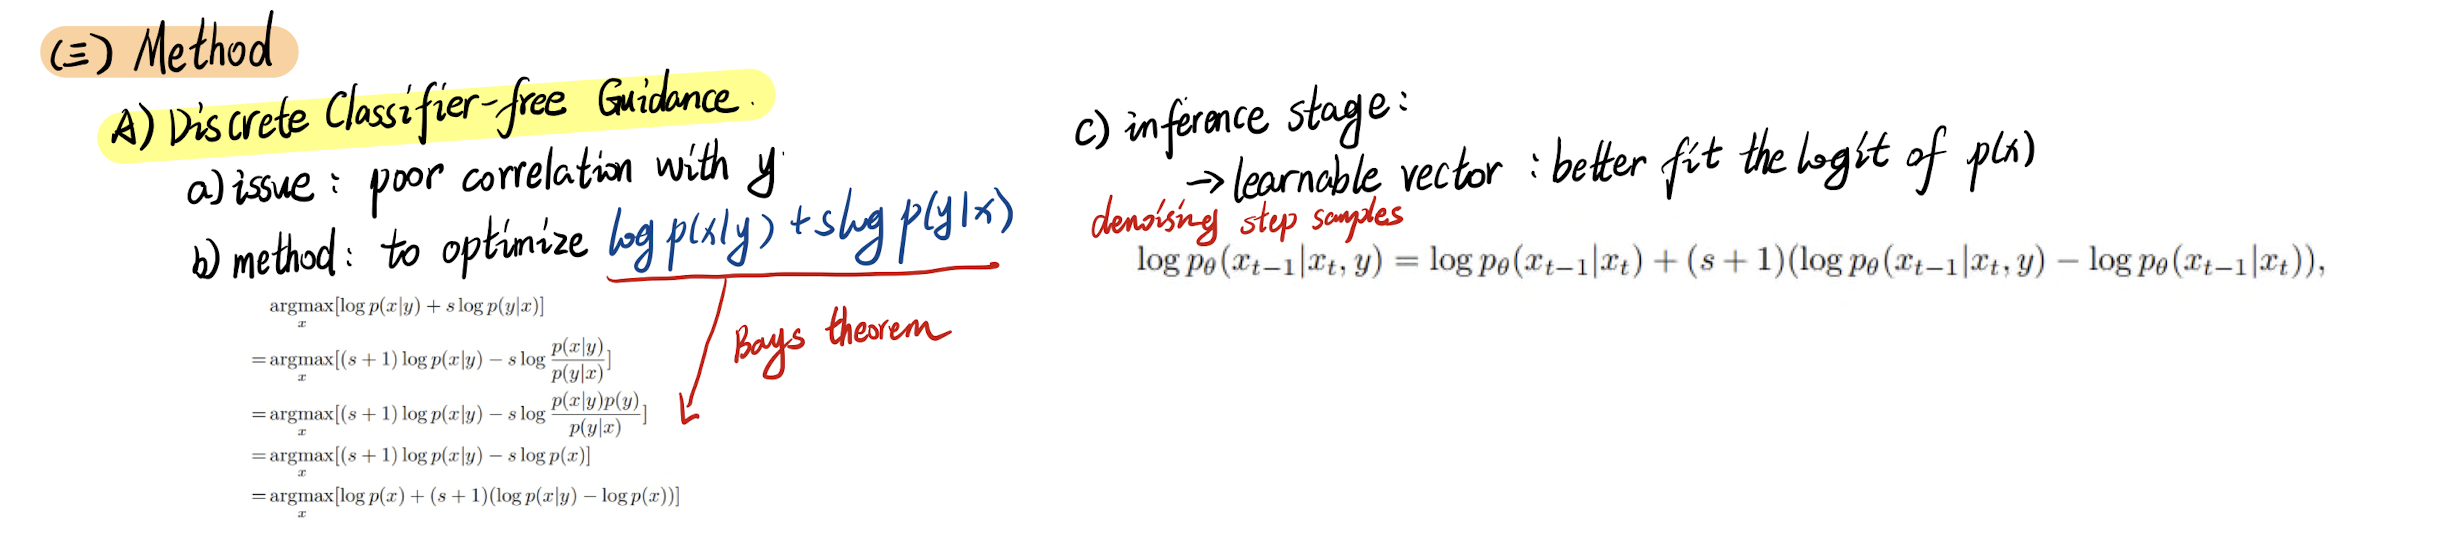 (三) Method
A) Discrete Classifier-free Guidance.
a) issue : poor correlation with y
b) method : to optimize log p(x|y) + slog p(y|x)
Bays theorem
argmax_x[log p(x|y) + s log p(y|x)]
=argmax_x[(s + 1) log p(x|y) − s log p(x|y)/p(y|x)]
=argmax_x[(s + 1) log p(x|y) − s log p(x|y)p(y)/p(y|x)]
=argmax_x[(s + 1) log p(x|y) − s log p(x)]
=argmax_x[log p(x) + (s + 1)(log p(x|y) − log p(x))]
c) inference stage :
→ learnable vector : better fit the logit of p(x)
denoising step samples
log p_θ(x_{t−1}|x_t, y) = log p_θ(x_{t−1}|x_t) + (s + 1)(log p_θ(x_{t−1}|x_t, y) − log p_θ(x_{t−1}|x_t)),